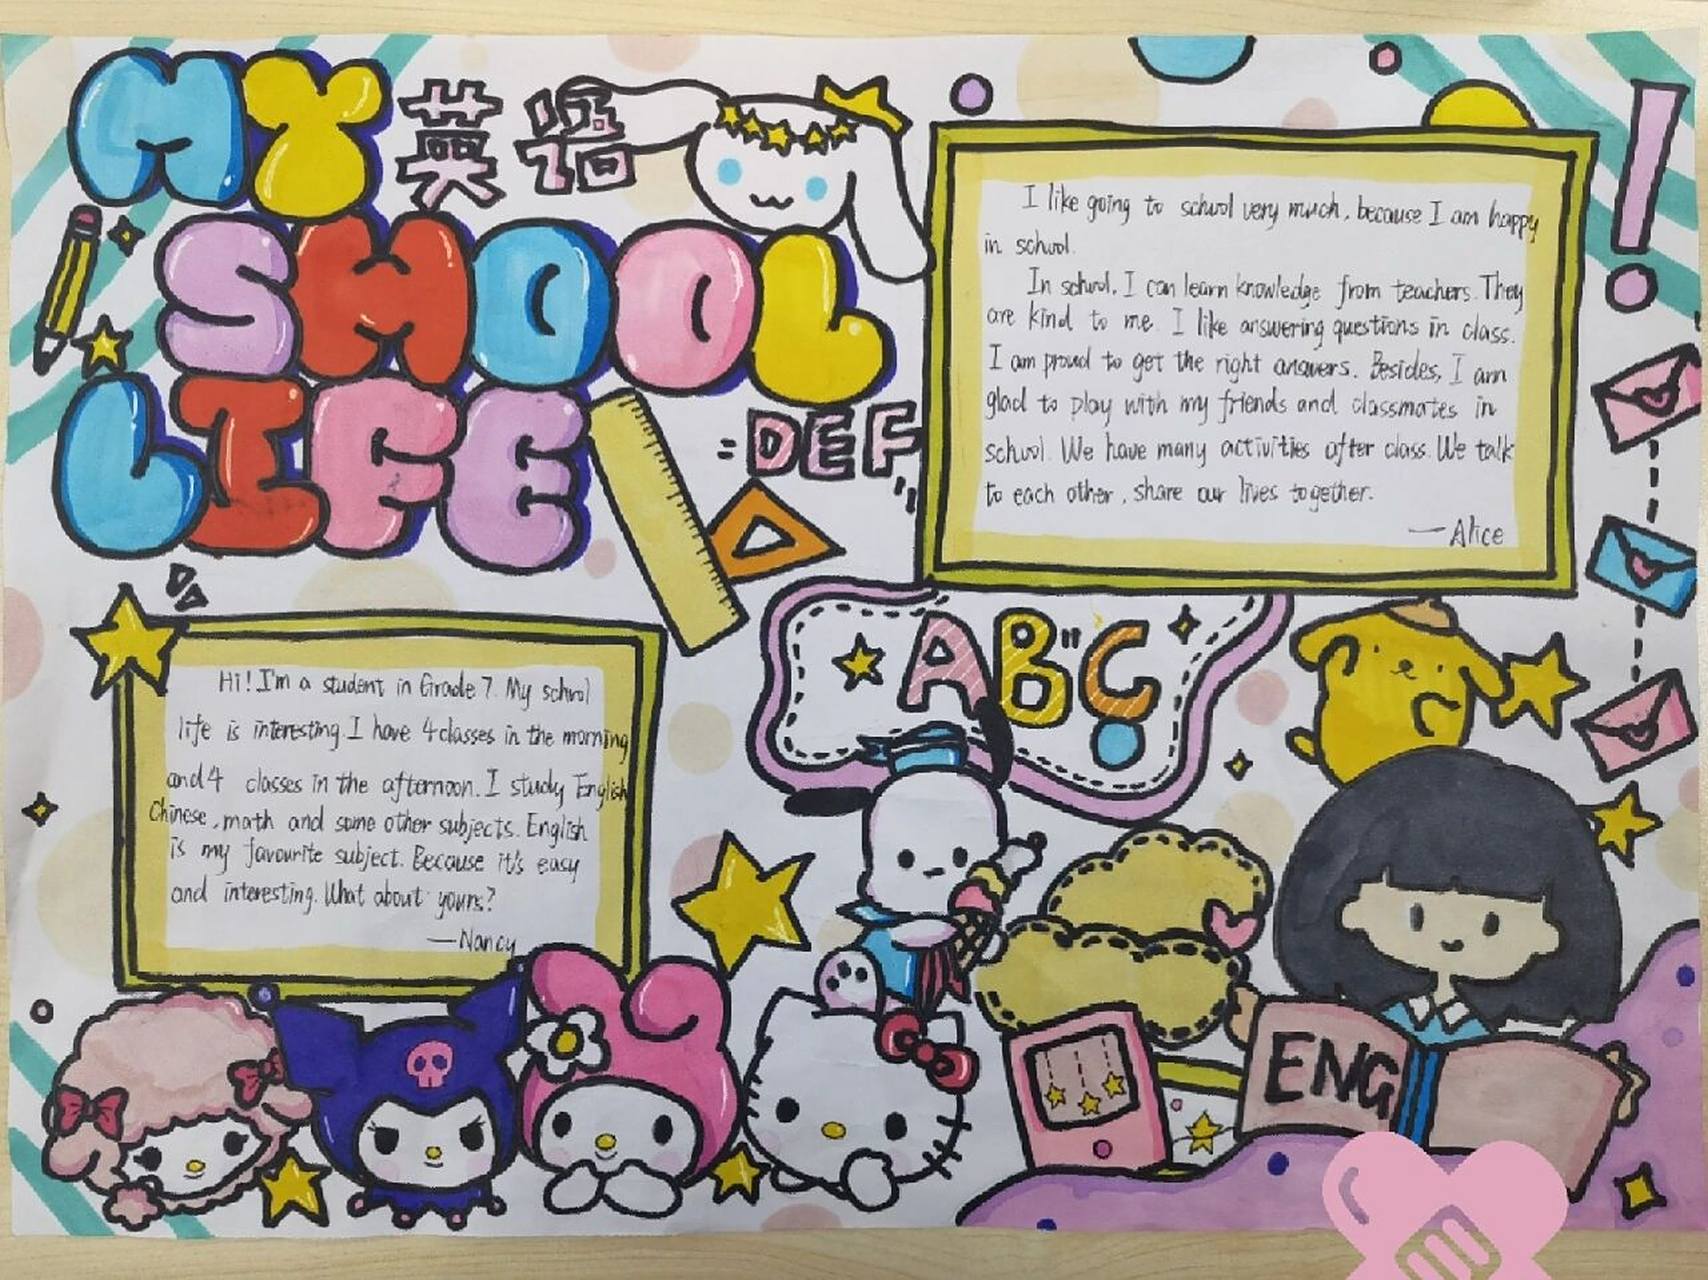 MY 英语
SHOOL
LIFE
:DEF
"
I like going to school very much, because I am happy
in school.
In school, I can learn knowledge from teachers. They
are kind to me. I like answering questions in class.
I am proud to get the right answers. Besides, I am
glad to play with my friends and classmates in
school. We have many activities after class. We talk
to each other, share our lives together.
—Alice
ABC
Hi! I'm a student in Grade 7. My school
life is interesting. I have 4 classes in the morning
and 4 classes in the afternoon. I study English
Chinese, math and some other subjects. English
is my favourite subject. Because it's easy
and interesting. What about yours?
—Nancy
ENG